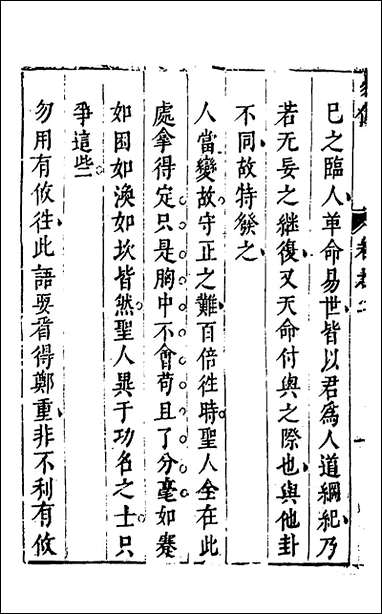 已之臨人革命易世皆以君爲人道綱紀乃
若无妄之繼復又天命付與之際也與他卦
不同故特發之
人當變故守正之難百倍徃時聖人全在此
處拿得定只是胸中不曾苟且了分毫如蹇
如困如渙如坎皆然聖人異于功名之士只
爭這些
勿用有攸徃此語要看得鄭重非不利有攸